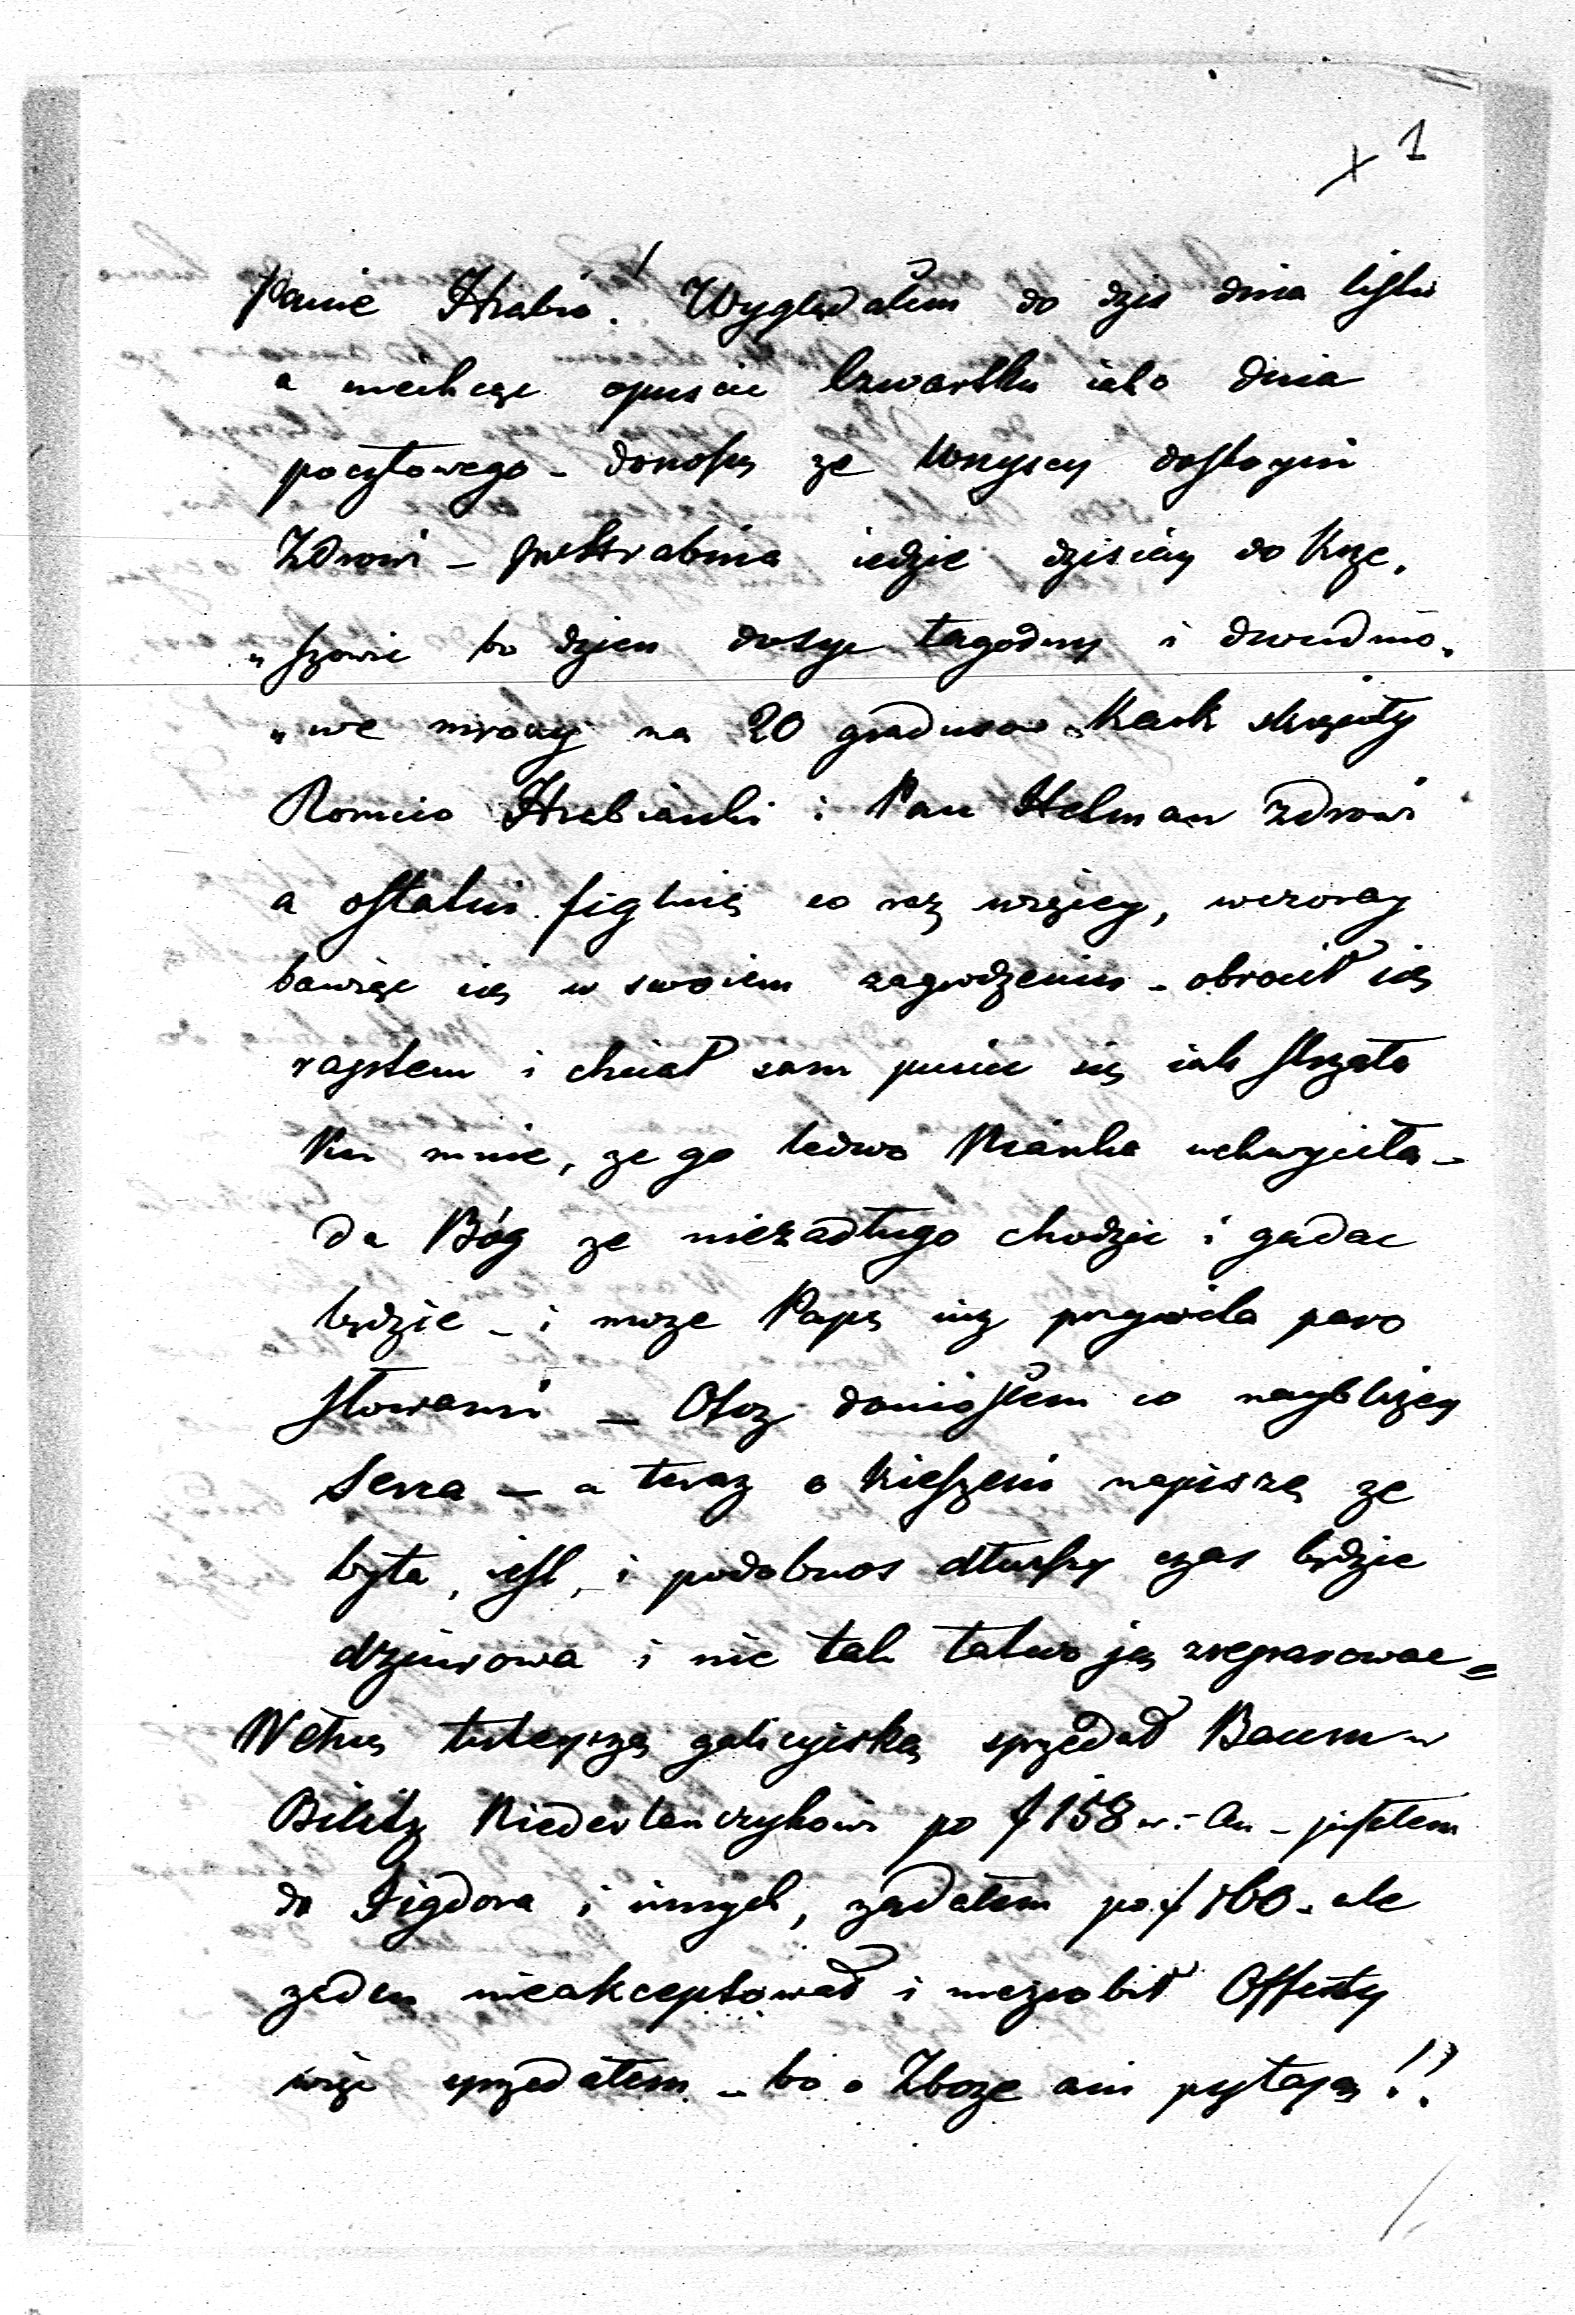 x 1
Panie Hrabio! Wyglądałem do dzis dnia listu
a niechcąc opuscic Czwartku iako dnia
pocztowego - donoszę ze Wszyscy dostoyni
Zdrowi - JWHrabina iedzie dzisiey do Krze„
„szowic bo dzien dosyc łagodny i dwudnio„
„we mrozy na 20 gradusow
Romcio Hrabianki i Pan Helman zdrowi
a ostatni figluie co raz więcey, wczoray
bawiąc się w swoiem zagrodzeniu - obrocił się
raptem i chciał sam puscic się iak strzała
Ku mnie, ze go ledwo Nianka uchwyciła -
da Bóg ze niezadługo chodzic i gadac
będzie - i moze Papę iuz przywita paro
słowami - Otoz doniosłem co naybliżey
Serca - a teraz o Kieszeni napiszę ze
była, iest, i podobnos dłuższy czas będzie
dziurowa i nie tak łatwo ją zreparowac =
Wełnę tuteyszą galicyiską sprzedał Baum w
Bilitz Niederlenczykowi po f 158 w: - pisałem
do Figdora i innych, ządałem po f 160 - ale
zeden nieakceptował i niezrobił Offerty
więc sprzedałem - bo o Zboze ani pytaią!!